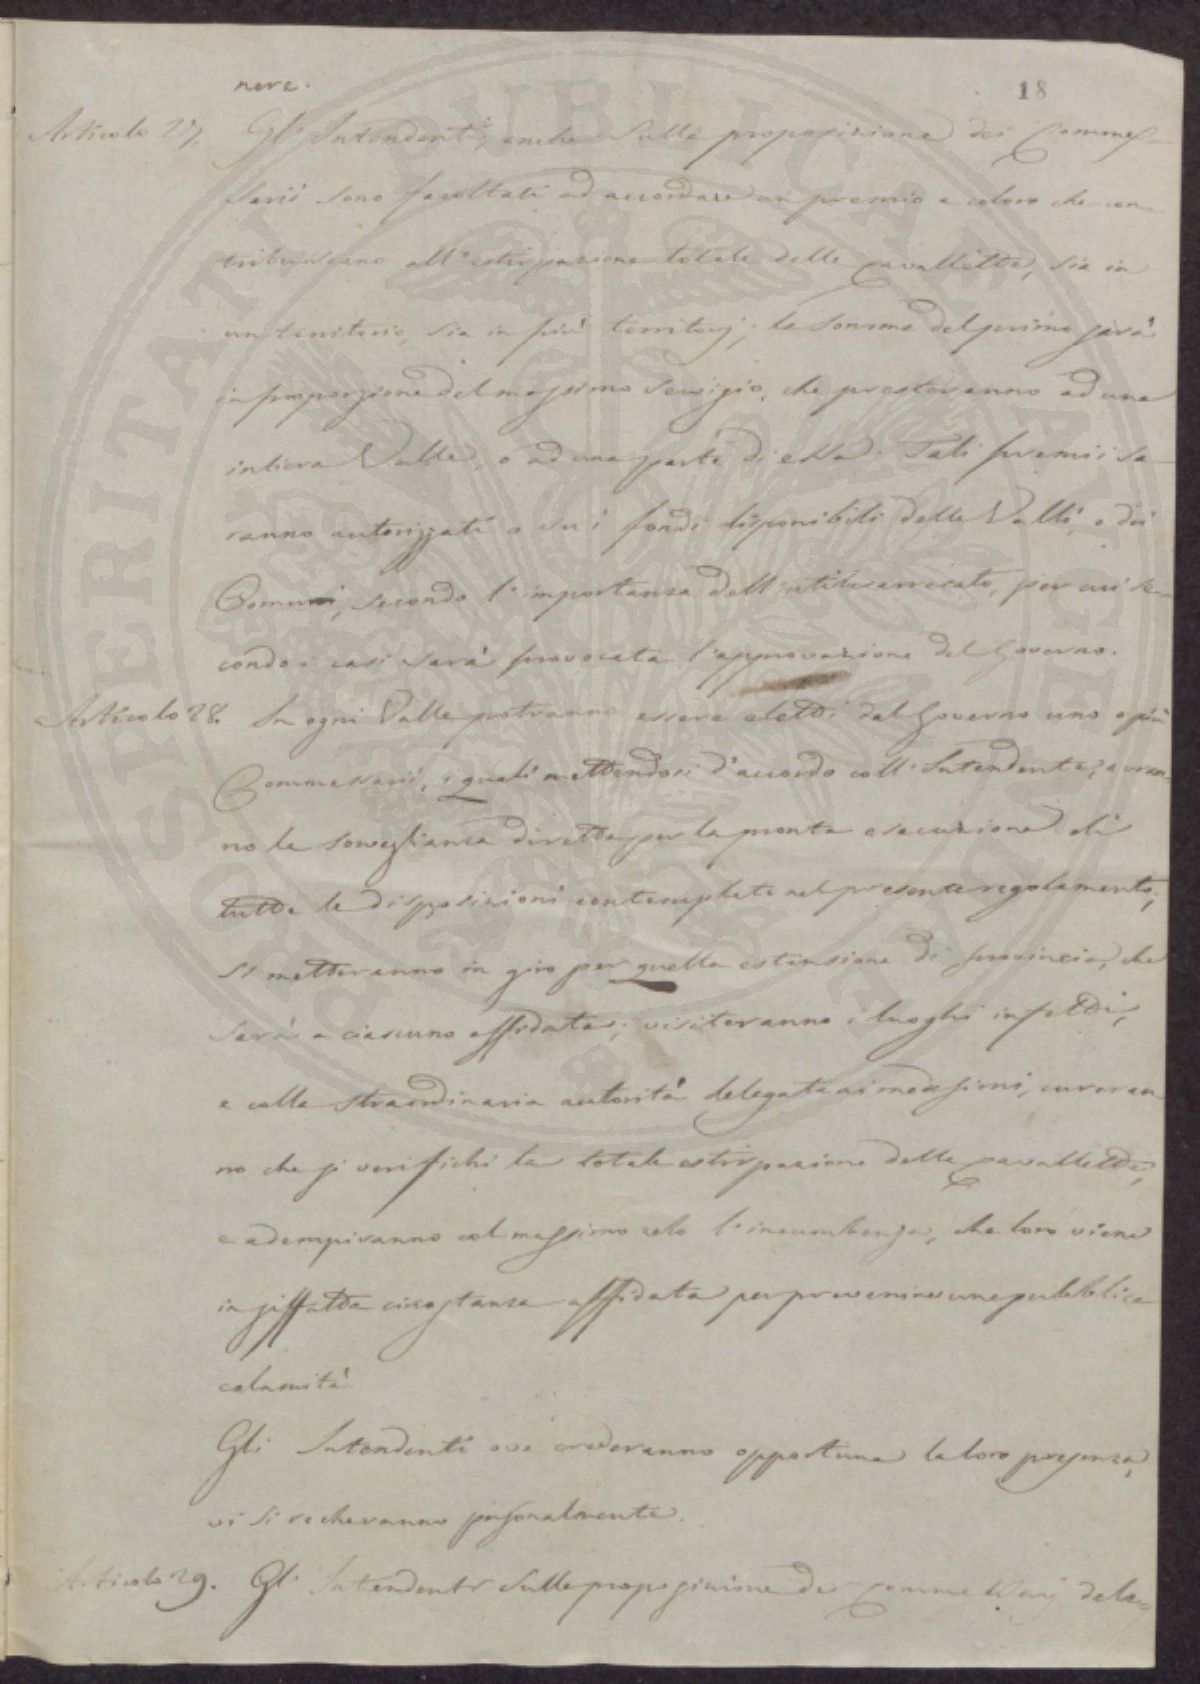 18
nere.
Articolo 27. Gl'Intendenti, anche sulla proposizione dei Commes-
sarii sono facoltati ad accordare un premio a coloro che con-
tribuiscano all'estirpazione totale delle cavallette, sia in
un territorio, sia in più territorj; la somma del premio sarà
in proporzione del massimo servigio, che presteranno ad una
intiera Valle, o ad una parte di essa. Tali premii sa-
ranno autorizzati o su i fondi disponibili delle Valli, o dei
Comuni, secondo l'importanza dell'utile arrecato, per cui se-
condo i casi sarà provocata l'approvazione del Governo.
Articolo 28. In ogni Valle potranno essere eletti dal Governo uno o più
Commessarii, i quali mettendosi d'accordo coll'Intendente, avran-
no la sorveglianza diretta per la pronta esecuzione di
tutte le disposizioni contemplate nel presente regolamento;
si metteranno in giro per quella estensione di provincia, che
sarà a ciascuno affidata; visiteranno i luoghi infetti,
e colla straordinaria autorità delegata ai medesimi, cureran
no che si verifichi la totale estirpazione delle cavallette,
e adempiranno col massimo zelo l'incumbenza, che loro viene
in siffatta circostanza affidata per prevenire una pubblica
calamità.
Gli Intendenti ove crederanno opportuna la loro presenza,
vi si recheranno personalmente.
Articolo 29. Gl'Intendenti sulla proposizione de' Commessarj dele-
PROSPERITATI PUBLICAE AUGENDAE